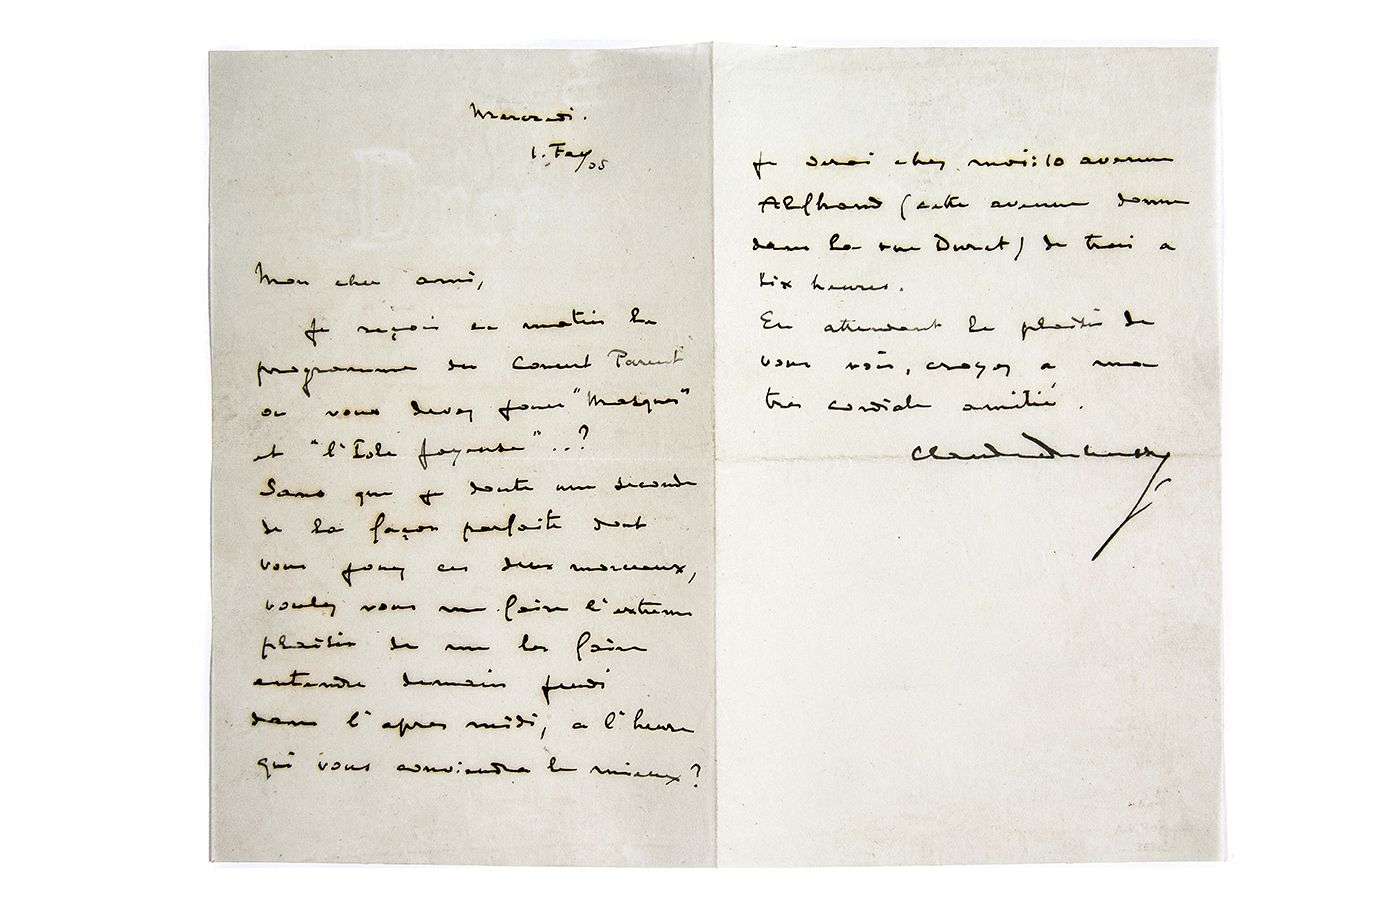 Mercredi.
1. Fey 05
Mon cher ami,
Je reçois ce matin le
programme du Concert Parent
ou vous devez jouer "Masques"
et "l'Isle joyeuse"..?
Sans que je doute une seconde
de la façon parfaite dont
vous jouez ces deux morceaux,
voulez vous me faire l'extrême
plaisir de me les faire
entendre demain jeudi
dans l'apres midi, a l'heure
qui vous conviendra le mieux?
Je serai chez moi: 10 avenue
Alphand (cette avenue donne
dans la rue Duret) de trois a
six heures.
En attendant le plaisir de
vous voir, croyez a ma
tres cordiale amitié.
Claude Debussy